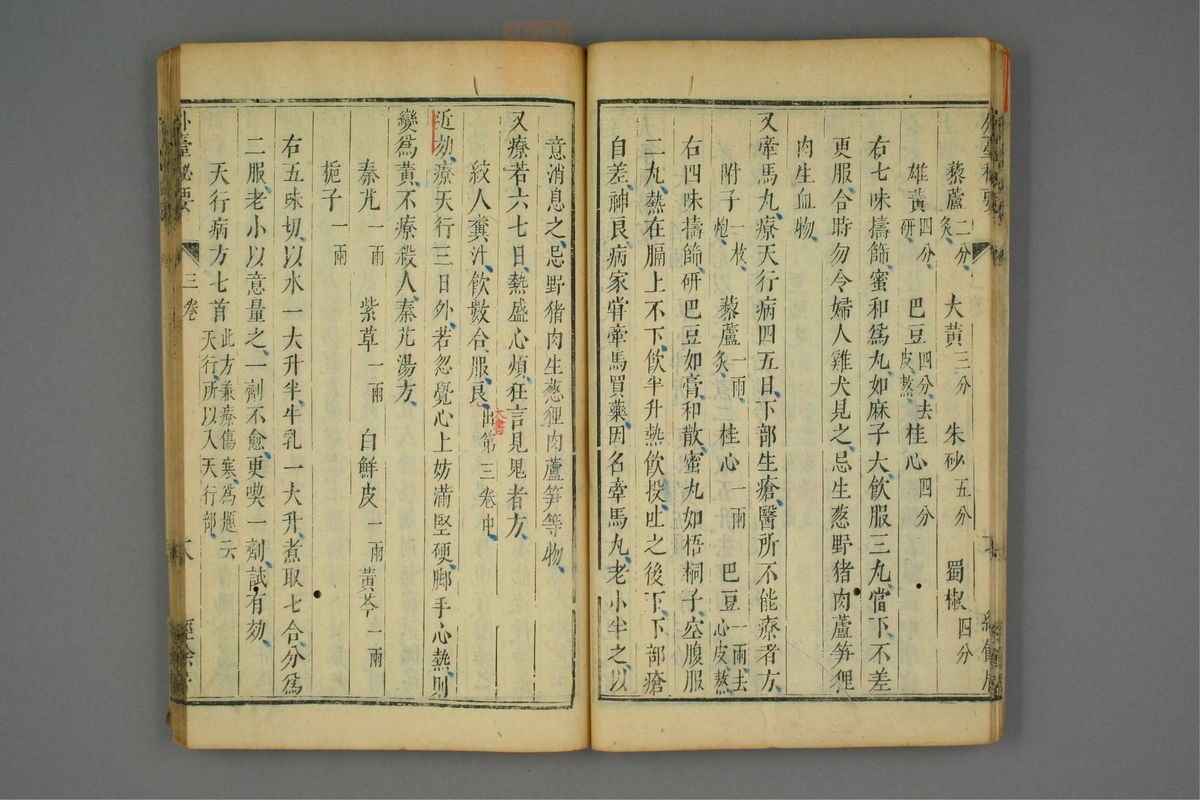 藜蘆二分炙 大黃三分 朱砂五分 蜀椒四分
雄黃四分研 巴豆四分去皮熬 桂心四分
右七味擣篩蜜和爲丸如麻子大飲服三丸當下不差
更服合時勿令婦人雞犬見之忌生葱野猪肉蘆笋狸
肉生血物
又牽馬丸療天行病四五日下部生瘡醫所不能療者方
附子一枚炮 藜蘆一兩炙 桂心一兩 巴豆一兩去心皮熬
右四味擣篩研巴豆如膏和散蜜丸如梧桐子空腹服
二丸熱在膈上不下飲半升熱飲投吐之後下下部瘡
自差神良病家甞牽馬買藥因名牽馬丸老小半之以
意消息之忌野猪肉生葱狸肉蘆笋等物
又療若六七日熱盛心煩狂言見鬼者方
絞人糞汁飲數合服良出第三卷中
大書
近効療天行三日外若忽覺心上妨滿堅硬脚手心熱則
變爲黃不療殺人秦艽湯方
秦艽一兩 紫草一兩 白鮮皮一兩 黃芩一兩
梔子一兩
右五味切以水一大升半牛乳一大升煮取七合分爲
二服老小以意量之一劑不愈更喫一劑試有効
天行病方七首此方兼療傷寒爲題云天行所以入天行部
外臺秘要 三卷